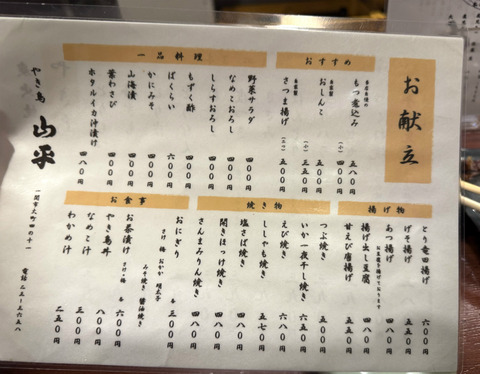 お献立
おすすめ
当店自慢の
もつ煮込み 五八〇円
自家製
おしんこ
(小)
自家製
さつま揚げ (三ケ) 五〇〇円
一品料理
野菜サラダ 四〇〇円
なめこおろし 四〇〇円
しらすおろし 四〇〇円
もずく酢 四〇〇円
ばくらい 六〇〇円
かにみそ 四〇〇円
山海漬 四〇〇円
葉わさび 四〇〇円
ホタルイカ沖漬け 四八〇円
揚げ物
とり竜田揚げ 六〇〇円
げそ揚げ 五五〇円
あつ揚げ 四八〇円
お豆腐を揚げております
揚げ出し豆腐 四八〇円
甘えび唐揚げ 五五〇円
焼き物
つぶ焼き 五五〇円
いか一夜干し焼き 六五〇円
えび焼き 六八〇円
ししゃも焼き 五七〇円
塩さば焼き 四八〇円
開きほっけ焼き 四八〇円
さんまみりん焼き 四八〇円
お食事
おにぎり
さけ 梅 おかか 明太子
みそ焼き 醤油焼き 各三〇〇円
お茶漬け さけ・梅 各六〇〇円
やき鳥丼 八〇〇円
なめこ汁 三〇〇円
わかめ汁 二五〇円
やき鳥 山平
一関市大町四の十一
電話